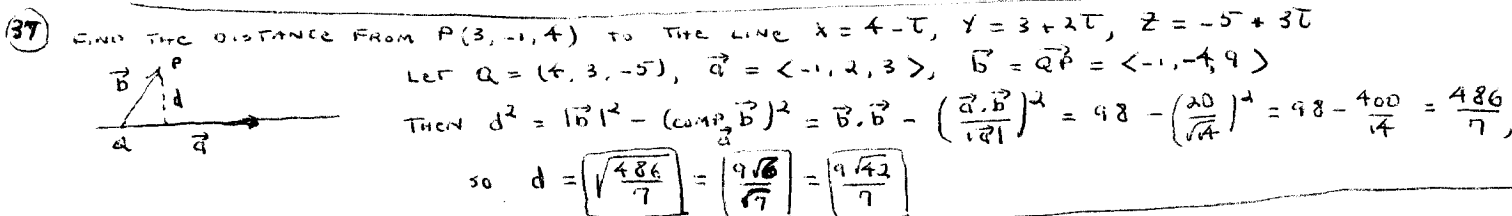 37 FIND THE DISTANCE FROM P(3, -1, 4) TO THE LINE X = 4 - t, Y = 3 + 2t, Z = -5 + 3t
LET Q = (4, 3, -5), a⃗ = <-1, 2, 3>, b⃗ = QP⃗ = <-1, -4, 9>
b⃗ P d Q a⃗
THEN d² = |b⃗|² - (comp_a⃗ b⃗)² = b⃗·b⃗ - (a⃗·b⃗/|a⃗|)² = 98 - (20/√14)² = 98 - 400/14 = 486/7,
so d = √(486/7) = 9√6/√7 = 9√42/7